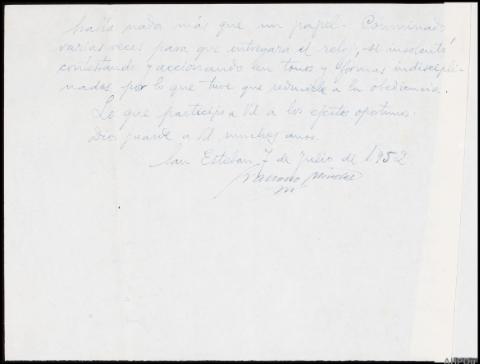 había nada más que un papel. Conminado
varias veces para que entregara el reloj, se insolentó
contestando y accionando con tonos y formas indiscipli-
nadas por lo que tuve que reducirle a la obediencia.
Lo que participo a Vd a los efectos oportunos.
Dios guarde a Vd. muchos años.
San Esteban 7 de Julio de 1952